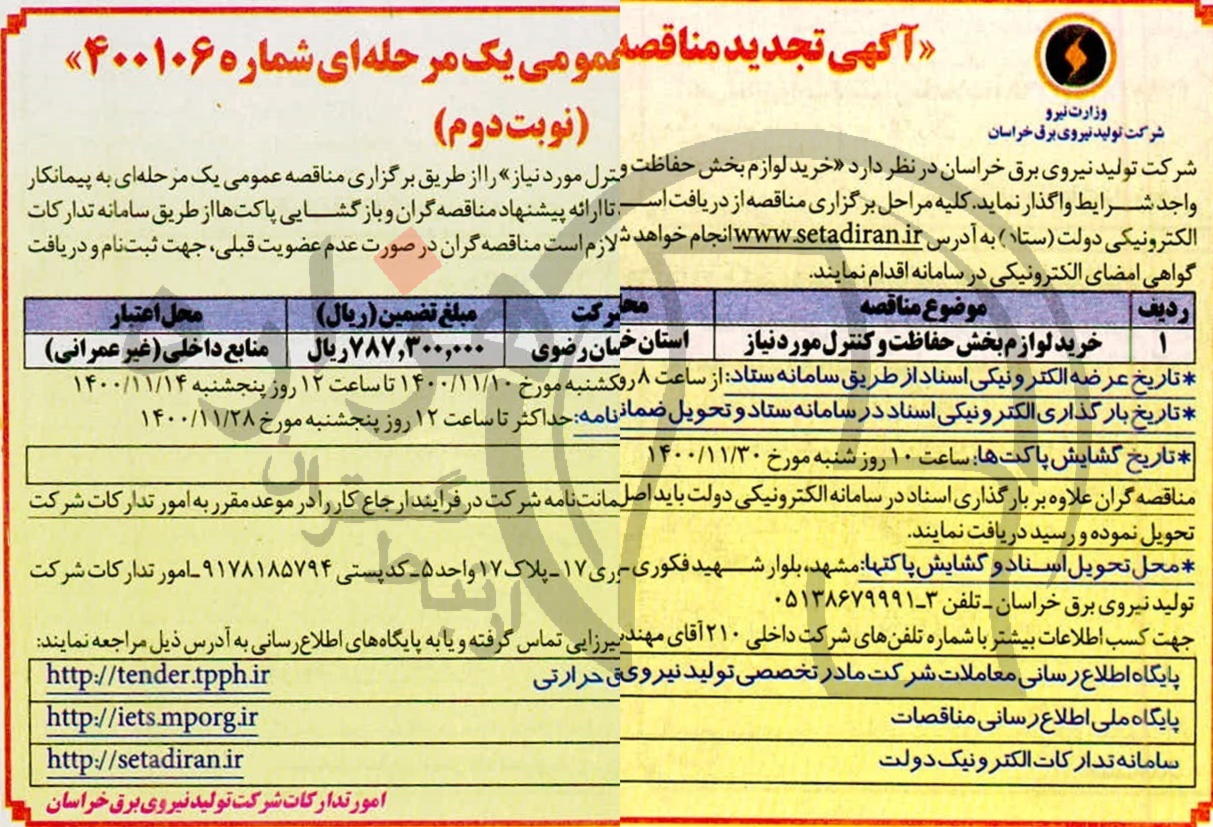 «آگهی تجدید مناقصه عمومی یک مرحله‌ای شماره ۴۰۰۱۰۶»
(نوبت دوم)
وزارت نیرو
شرکت تولید نیروی برق خراسان
شرکت تولید نیروی برق خراسان در نظر دارد «خرید لوازم بخش حفاظت و کنترل مورد نیاز» را از طریق برگزاری مناقصه عمومی یک مرحله‌ای به پیمانکار
واجد شرایط واگذار نماید. کلیه مراحل برگزاری مناقصه از دریافت اسـ تا ارائه پیشنهاد مناقصه گران و بازگشایی پاکت‌ها از طریق سامانه تدارکات
الکترونیکی دولت (ستاد) به آدرس www.setadiran.ir انجام خواهد شد لازم است مناقصه گران در صورت عدم عضویت قبلی، جهت ثبت‌نام و دریافت
گواهی امضای الکترونیکی در سامانه اقدام نمایند.
ردیف موضوع مناقصه محل شرکت مبلغ تضمین (ریال) محل اعتبار
۱ خرید لوازم بخش حفاظت و کنترل مورد نیاز استان خراسان رضوی ۷۸۷,۳۰۰,۰۰۰ ریال منابع داخلی (غیر عمرانی)
*تاریخ عرضه الکترونیکی اسناد از طریق سامانه ستاد: از ساعت ۸ روز یکشنبه مورخ ۱۴۰۰/۱۱/۱۰ تا ساعت ۱۲ روز پنجشنبه ۱۴۰۰/۱۱/۱۴
*تاریخ بارگذاری الکترونیکی اسناد در سامانه ستاد و تحویل ضمانتنامه: حداکثر تا ساعت ۱۲ روز پنجشنبه مورخ ۱۴۰۰/۱۱/۲۸
*تاریخ گشایش پاکت‌ها: ساعت ۱۰ روز شنبه مورخ ۱۴۰۰/۱۱/۳۰
مناقصه گران علاوه بر بارگذاری اسناد در سامانه الکترونیکی دولت باید اصل ضمانت‌نامه شرکت در فرایند ارجاع کار را در موعد مقرر به امور تدارکات شرکت
تحویل نموده و رسید دریافت نمایند.
*محل تحویل اسناد و گشایش پاکتها: مشهد، بلوار شهید فکوری - فکوری ۱۷ - پلاک ۱۷ واحد ۵ - کدپستی ۹۱۷۸۱۸۵۷۹۴ - امور تدارکات شرکت
تولید نیروی برق خراسان - تلفن ۳-۰۵۱۳۸۶۷۹۹۹۱
جهت کسب اطلاعات بیشتر با شماره تلفن‌های شرکت داخلی ۲۱۰ آقای مهندس میرزایی تماس گرفته و یا به پایگاه‌های اطلاع رسانی به آدرس ذیل مراجعه نمایند:
پایگاه اطلاع رسانی معاملات شرکت مادر تخصصی تولید نیروی برق حرارتی http://tender.tpph.ir
پایگاه ملی اطلاع رسانی مناقصات http://iets.mporg.ir
سامانه تدارکات الکترونیک دولت http://setadiran.ir
امور تدارکات شرکت تولید نیروی برق خراسان